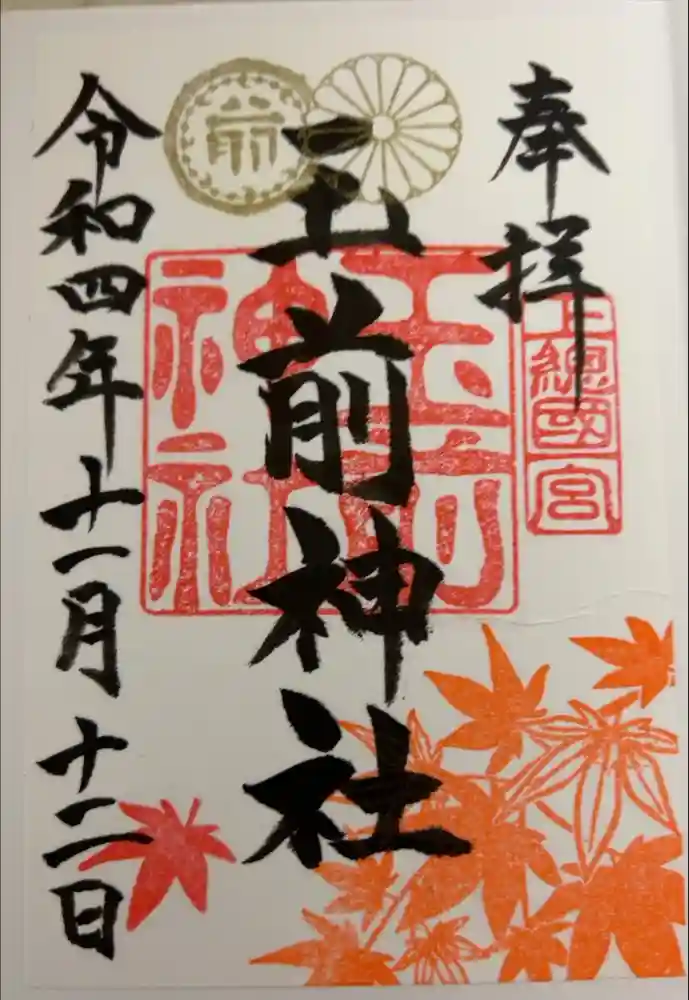 奉拝
上總國一宮
玉前神社
玉前神社
前
令和四年十一月十二日